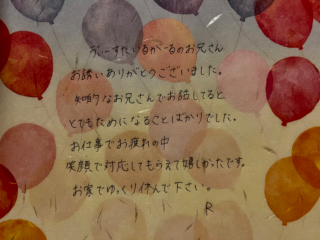 うぃーすたいるがーるのお兄さん
お誘いありがとうございました。
知的なお兄さんでお話してると
とてもためになることばかりでした。
お仕事でお疲れの中
笑顔で対応してもらえて嬉しかったです。
お家でゆっくり休んで下さい。
R